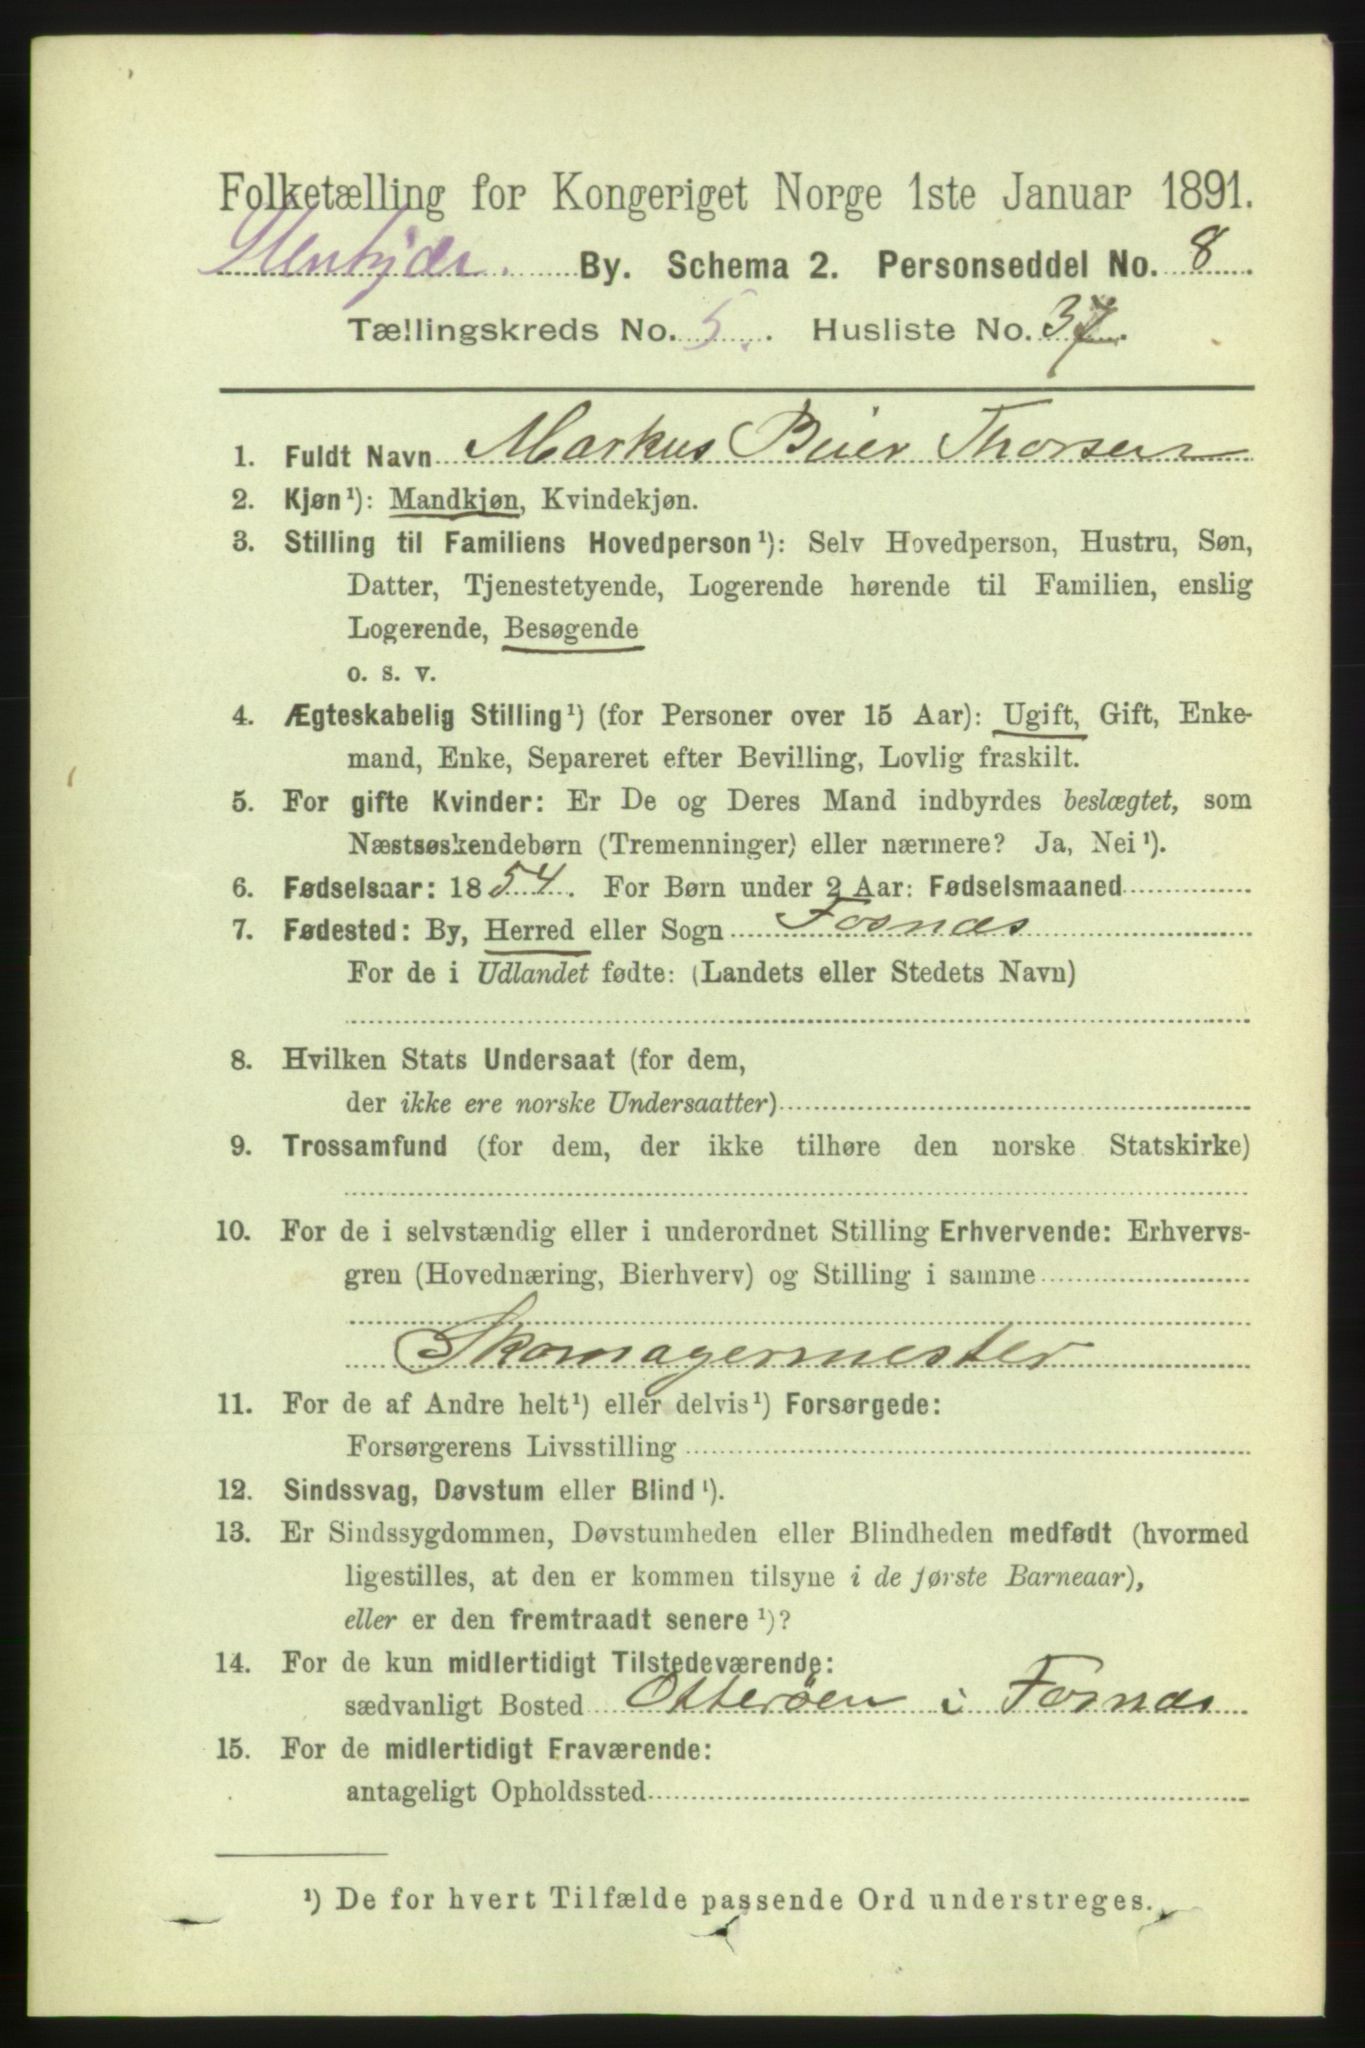 Folketælling for Kongeriget Norge 1ste Januar 1891.
By. Schema 2. Personseddel No. 8
Tællingskreds No. 5. Husliste No. 37.
1. Fuldt Navn Markus Beier Thorsen
2. Kjøn¹): Mandkjøn, Kvindekjøn.
3. Stilling til Familiens Hovedperson¹): Selv Hovedperson, Hustru, Søn,
Datter, Tjenestetyende, Logerende hørende til Familien, enslig
Logerende, Besøgende
o. s. v.
4. Ægteskabelig Stilling¹) (for Personer over 15 Aar): Ugift, Gift, Enke-
mand, Enke, Separeret efter Bevilling, Lovlig fraskilt.
5. For gifte Kvinder: Er De og Deres Mand indbyrdes beslægtet, som
Næstsøskendebørn (Tremenninger) eller nærmere? Ja, Nei¹).
6. Fødselsaar: 1854. For Børn under 2 Aar: Fødselsmaaned
7. Fødested: By, Herred eller Sogn Fosnæs
For de i Udlandet fødte: (Landets eller Stedets Navn)
8. Hvilken Stats Undersaat (for dem,
der ikke ere norske Undersaatter)
9. Trossamfund (for dem, der ikke tilhøre den norske Statskirke)
10. For de i selvstændig eller i underordnet Stilling Erhvervende: Erhvervs-
gren (Hovednæring, Bierhverv) og Stilling i samme
Skomagermester
11. For de af Andre helt¹) eller delvis¹) Forsørgede:
Forsørgerens Livsstilling
12. Sindssvag, Døvstum eller Blind¹).
13. Er Sindssygdommen, Døvstumheden eller Blindheden medfødt (hvormed
ligestilles, at den er kommen tilsyne i de første Barneaar),
eller er den fremtraadt senere¹)?
14. For de kun midlertidigt Tilstedeværende:
sædvanligt Bosted Otterøen i Fosnæs
15. For de midlertidigt Fraværende:
antageligt Opholdssted
¹) De for hvert Tilfælde passende Ord understreges.